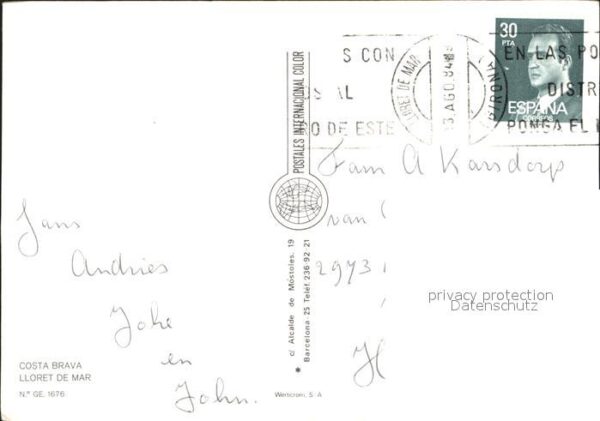 Jans
Andries
Joke
en
John.
COSTA BRAVA
LLORET DE MAR
N.º GE. 1676
POSTALES INTERNACIONAL COLOR
c/ Alcalde de Móstoles, 19
Barcelona - 25 Teléf. 236 - 92 - 21
Wertcrom, S. A
S CON
US AL
O DE ESTE
LLORET DE MAR
13 AGO 84
(GIRONA)
EN LAS PO
DISTR
PONGA EL
30
PTA
ESPAÑA
CORREOS
Fam A Karsdorp
van
2973
H
privacy protection
Datenschutz